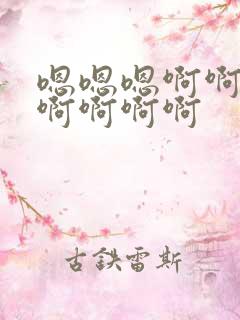 嗯嗯嗯啊啊
啊啊啊啊
古鉄雷斯